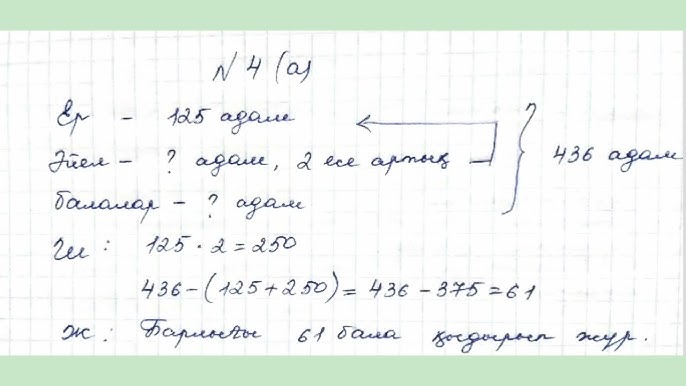 N 4 (а)
Ер - 125 адам
Әйел - ? адам, 2 есе артық
436 адам
балалар - ? адам
Ш: 125 · 2 = 250
436 - (125 + 250) = 436 - 375 = 61
Ж: Барлығы 61 бала қыдырып жүр.